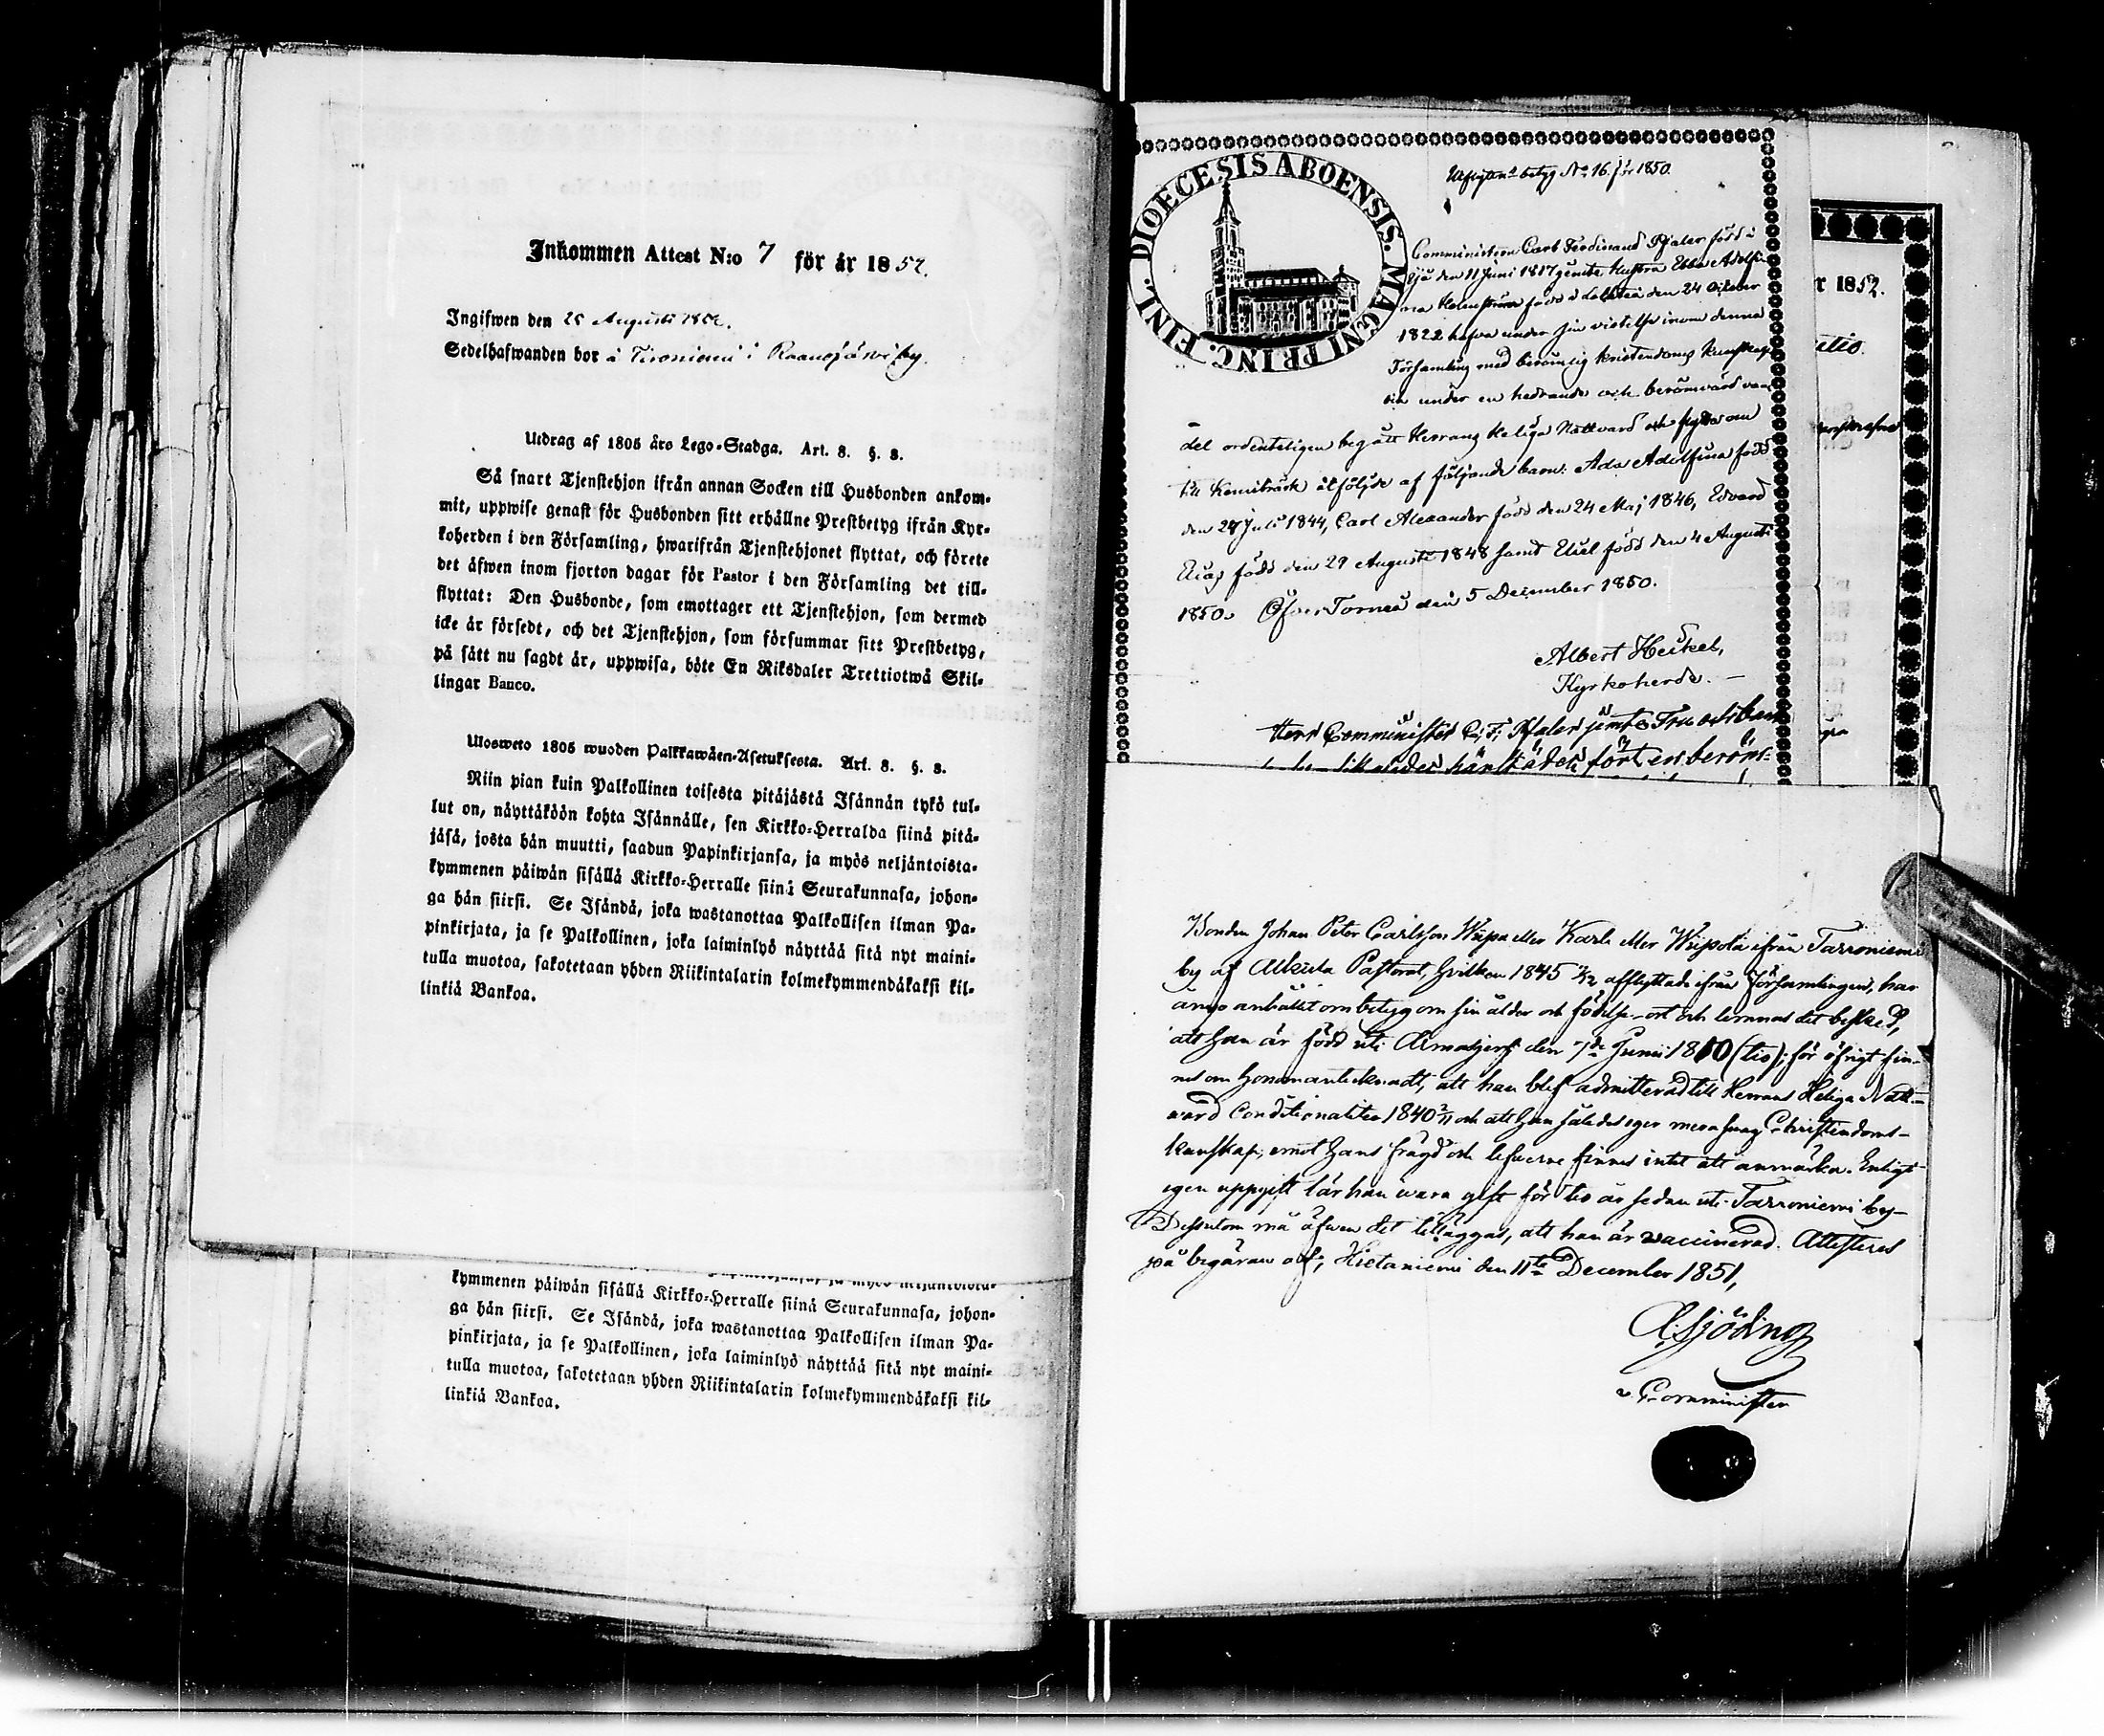 Inkommen Attest N:o 7 för år 1852.
Ingifwen den 25 Augusti 1852.
Sedelhafwanden bor å Tironiemi i Raanujärwi by.
Utdrag af 1805 års Lego-Stadga. Art. 8. §. 8.
Så snart Tjenstehjon ifrån annan Socken till Husbonden ankom-
mit, uppwise genast för Husbonden sitt erhållne Prestbetyg ifrån Kyr-
koherden i den Församling, hwarifrån Tjenstehjonet flyttat, och förete
det äfwen inom fjorton dagar för Pastor i den Församling det till-
flyttat: Den Husbonde, som emottager ett Tjenstehjon, som dermed
icke är försedt, och det Tjenstehjon, som försummar sitt Prestbetyg,
på sätt nu sagdt är, uppwisa, böte En Riksdaler Trettiotwå Skil-
lingar Banco.
Ulosweto 1805 wuoden Palkkawäen-Asetuksesta. Art. 8. §. 8.
Niin pian kuin Palkollinen toisesta pitäjästä Isännän tykö tul-
lut on, näyttäköön kohta Isännälle, sen Kirkko-Herralda siinä pitä-
jäsä, josta hän muutti, saadun Papinkirjansa, ja myös neljäntoista-
kymmenen päiwän sisällä Kirkko-Herralle siinä Seurakunnasa, johon-
ga hän siirsi. Se Isändä, joka wastanottaa Palkollisen ilman Pa-
pinkirjata, ja se Palkollinen, joka laiminlyö näyttää sitä nyt maini-
tulla muotoa, sakotetaan yhden Riikintalarin kolmekymmendäkaksi kil-
linkiä Bankoa.
kymmenen päiwän sisällä Kirkko-Herralle siinä Seurakunnasa, johon-
ga hän siirsi. Se Isändä, joka wastanottaa Palkollisen ilman Pa-
pinkirjata, ja se Palkollinen, joka laiminlyö näyttää sitä nyt maini-
tulla muotoa, sakotetaan yhden Riikintalarin kolmekymmendäkaksi kil-
linkiä Bankoa.
DIOECESIS ABOENSIS. MAGNI PRINC. FINL.
betyg No 16. för 1850.
Communistern Carl Ferdinand Pfaler född i
den 11 Juni 1817 jemte Hustru Ebba Adolfi-
na Holmström född i den 24 October
1822 hafva under sin vistelse inom denna
Församling med berömlig kristendoms kunskap
under en hedrande och berömvärd van-
del ordenteligen begått Herrans Heliga Nattvard och flytta om
till Kemiträsk åtföljde af följande barn: Ada Adolfina född
den 27 Juli 1844, Carl Alexander född den 24 Maj 1846, Edvard
Elias född den 29 Augusti 1848 samt Eliel född den 4 Augusti
1850. Öfver Torneå den 5 December 1850.
Albert Heikel,
Kyrkoherde.
Herr Comminister C. F. Pfaler jemte Fru och barn
härstädes fört en beröm-
r 1852.
Bonden Johan Peter Carlsson Wupa eller Karls eller Wuipola ifrån Tarroniemi
by af Alkula Pastorat, hvilken 1845 afflyttade ifrån Församlingen, har
anhållit om betyg om sin ålder och födelse-ort och lemnas det besked,
att han är född uti Armasjerf den 7de Junii 1810 (tio); för öfrigt fin-
nes om honom antecknadt, att han blef admitterad till Herrans Heliga Natt-
vard Conditionaliter 1840 och att han således eger mera svag Christendoms-
kunskap; emot hans frägd och lefverne finnes intet att anmärka. Enligt
egen uppgift lär han wara gift för tio år sedan uti Tarroniemi by-
Dessutom må äfwen det tilläggas, att han är waccinerad. Attesteras
på begäran af; Hietaniemi den 11te December 1851,
Sjöding
v. Comminister